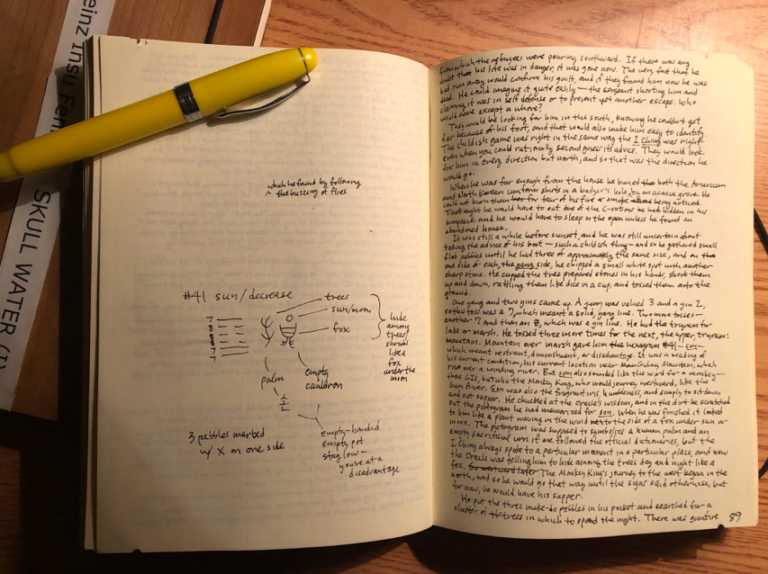 einz Insu Fen
SKULL WATER (I)
which he found by following
the buzzing of flies
#41 sun/decrease
trees
sun/moon
fox
hide
among
trees/
shrubs
like a
fox
under the
moon
7
8
8
8
7
7
palm
empty
cauldron
손
3 pebbles marked
w/ X on one side
empty-handed
empty pot
stay low –
you're at a
disadvantage
from which the refugees were pouring southward. If there was any
doubt that his life was in danger, it was gone now. The very fact that he
had run away would confirm his guilt, and if they found him now he was
dead. He could imagine it quite easily — the sergeant shooting him and
claiming it was in self defense or to prevent yet another escape. Who
would care except a whore?
They would be looking for him in the south, knowing he couldn't get
far because of his foot, and that would also make him easy to identify.
The childish game was right in the same way the I Ching was right
even when you could rationally second guess its advice. They would look
for him in every direction but north, and so that was the direction he
would go.
When he was far enough from the house he buried both the American
and North Korean uniform shirts in a badger's hole, by an acacia grove. He
could not burn them for fear of his fire or smoke being noticed.
That night he would have to eat one of the C-rations he had hidden in his
knapsack and he would have to sleep in the open unless he found an
abandoned house.
It was still a while before sunset, and he was still uncertain about
taking the advice of his boot — such a childish thing — and so he gathered small
flat pebbles until he had three of approximately the same size, and on
one side of each, the yang side, he chipped a small white spot with another
sharp stone. He cupped the three prepared stones in his hands, shook them
up and down, rattling them like dice in a cup, and tossed them onto the
ground.
One yang and two yins came up. A yang was valued 3 and a yin 2,
so this toss was a 7, which meant a solid, yang line. Two more tosses —
another 7 and then an 8, which was a yin line. He had the trigram for
lake or marsh. He tossed three more times for the next, the upper, trigram:
mountain. Mountain over marsh gave him the hexagram #41 – son –
which meant restraint, diminishment, or disadvantage. It was a reading of
his current condition, his current location near mountain, which
rose over a winding river. But son also sounded like the word for a monkey —
the Monkey King, who would journey westward, like the
river. Son was also the fragrant humbleness, and simply to sit down
and eat supper. He chuckled at the Oracle's wisdom, and in the dirt he scratched
out the pictogram he had memorized for son. When he was finished it looked
to him like a plant waving in the wind to the side of a fox under sun or
moon. The pictogram was supposed to symbolize a human palm and an
empty sacrificial urn if one followed the official dictionaries, but the
I Ching always spoke to a particular moment in a particular place, and now
the Oracle was telling him to hide among the trees day and night like a
fox. The Monkey King's journey to the west began in the
north, and so he would go that way until the signs said otherwise, but
for now, he would have his supper.
He put the three make-do pebbles in his pocket and searched for a
cluster of trees in which to spend the night. There was gunfire
89